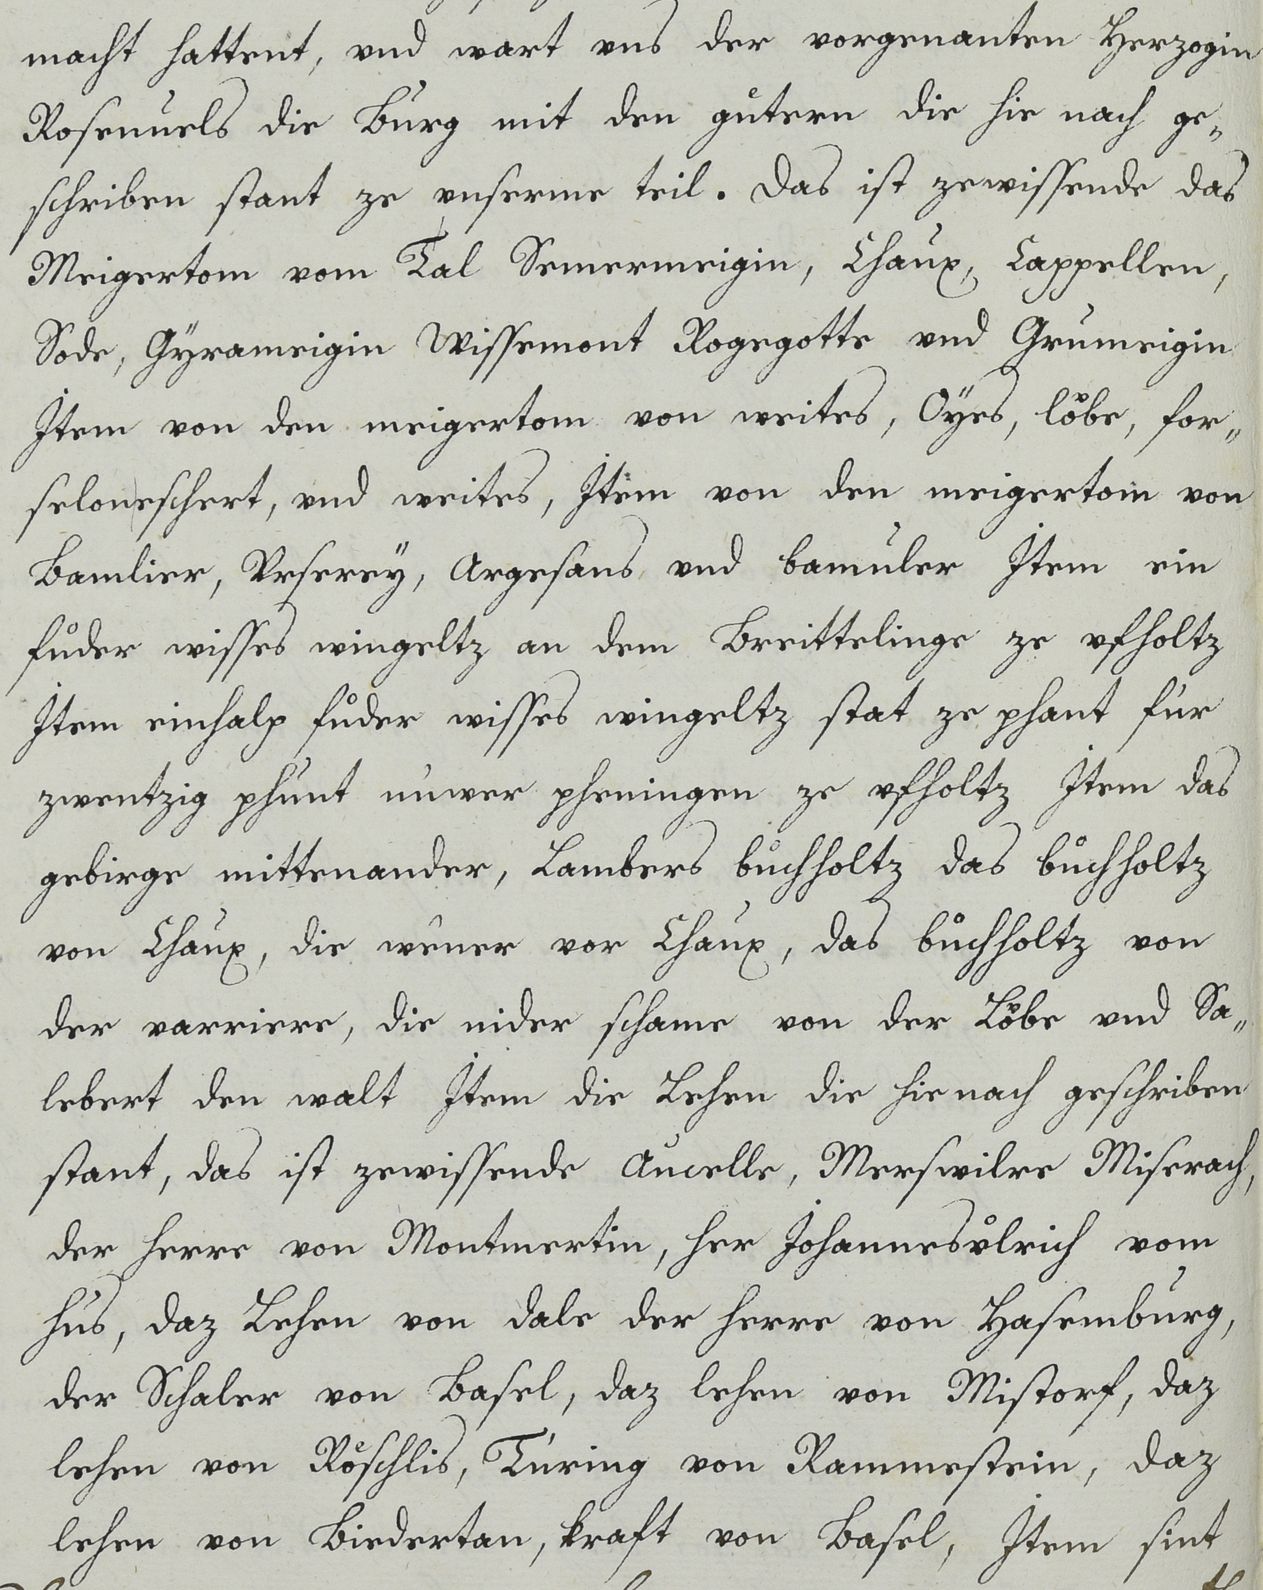 macht hattent, vnd wart vns der vorgenanten Herzogin
Rosenuels die Burg mit den gůtern die hie nach ge„
schriben stant ze vnserme teil. Das ist zewissende das
Meigertom vom Tal Semermeigin, Chaux, Cappellen,
Sode, Gÿrameigin Wissemont Rogegotte vnd Grumeigin
Item von den meigertom von weites, Oÿes, lôbe, for„
seloneschert, vnd weites, Item von den meigertom von
Bamlier, Vrserey, Argesans vnd bamuler Item ein
fůder wisses wingeltz an dem Breittelinge ze vfholtz
Item einhalp fůder wisses wingeltz stat ze phant fur
zwentzig phunt nuwer pheningen ze vfholtz Item das
gebirge mittenander, Lambers bůchholtz das bůchholtz
von Chaux, die wuner vor Chaux, das bůchholtz von
der varriere, die nider schame von der Lôbe vnd Sa„
lebert den walt Item die Lehen die hienach geschriben
stant, das ist zewissende Aucelle, Merswilre Miserach,
der herre von Montmertin, her Johannesvͦlrich vom
hus, daz Lehen von dale der herre von Hasemburg,
der Schaler von Basel, daz lehen von Mistorf, daz
lehen von Röschlis, Turing von Rammestein, daz
lehen von Biedertan, kraft von Basel, Item sint